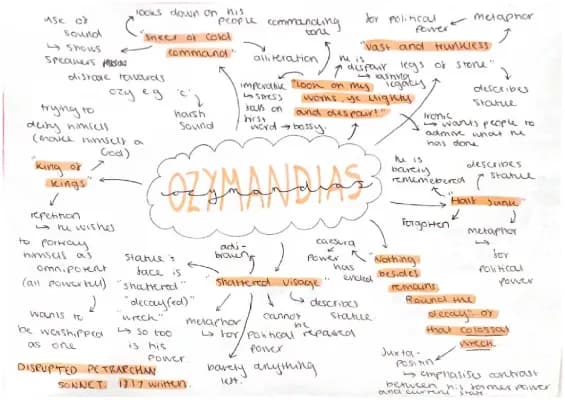 use of
sound
↳ shows
speakers
distaste towards
ozy e.g 'c'
harsh
sound
looks down on his
people
commanding
tone
"sneer of cold
command"
alliteration
imperative
↳ stress
falls on
first
word → bossy.
"look on my
works, ye Mighty
and despair!"
he is
despair
↳ lasting
legacy
ironic
↳ wants people to
admire what he
has done
for political
power
metaphor
"Vast and trunkless
legs of stone"
describes
statue
trying to
deify himself
(make himself a
God)
"King of
Kings"
repetition
↳ he wishes
to portray
himself as
omnipotent
(all powerful)
wants to
be worshipped
as one
OZYMANDIAS
ozymandias
he is
barely
remembered
describes
statue
"Half sunk"
forgotten
metaphor
↳ for
political
power
"Nothing
besides
remains.
Round the
decay" of
that colossal
wreck
caesura
↳ power
has
ended
Juxta-
position
↳ emphasises contrast
between his former power
and current state
"Shattered visage"
broken
statue's
face is
"shattered"
"decay(ed)"
"wreck"
↳ so too
is his
power
metaphor
↳ for political
power
cannot
be
repaired
describes
statue
barely anything
left.
DISRUPTED PETRARCHAN
SONNET. 1817 written.